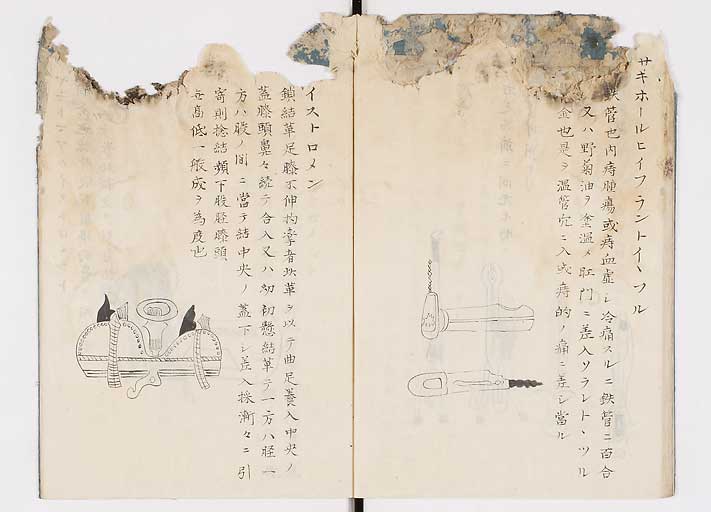 サギホールヒイフラントイヽツル
鉄管也内痔腫瘍或痔血虚シ冷痛スルニ鉄管ニ百合
又ハ野菊油ヲ塗温メ肛門ニ差入ソラントヽツル
金也是ヲ温管穴ニ入或痔的ノ痛ニ差シ當ル
イストロメン
鎖結革足膝不伸拘攣者此革ヲ以テ曲足蓋入中央ノ
蓋膝頭鼻々続テ合入又ハ幼初懸結革テ一方ハ脛一
方ハ股ノ間ニ當テ詰中央ノ蓋下シ差入採漸々ニ引
寄則捻結頻下股脛膝頭
無高低一般成ヲ為度也